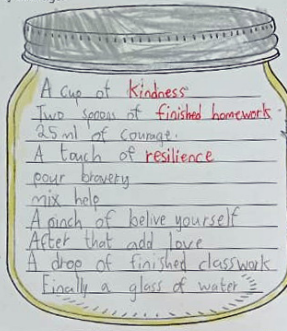 A cup of kindness
Two spoons of finished homework.
25 ml of courage.
A touch of resilience
pour bravery
mix help
A pinch of belive yourself
After that add love
A drop of finished classwork
Finally a glass of water